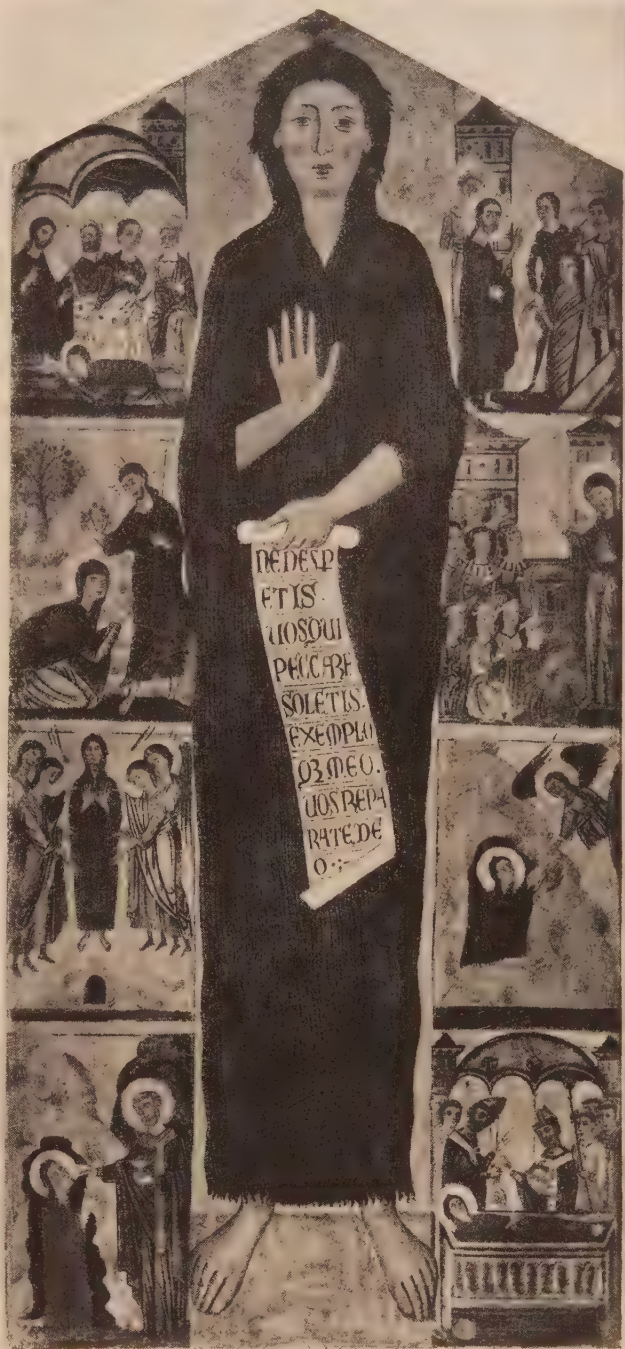 NE DESP
ETIS
UOS QUI
PECCARE
SOLETIS.
EXEMPLO
Q3 MEO.
UOS REPA
RATE DE
O